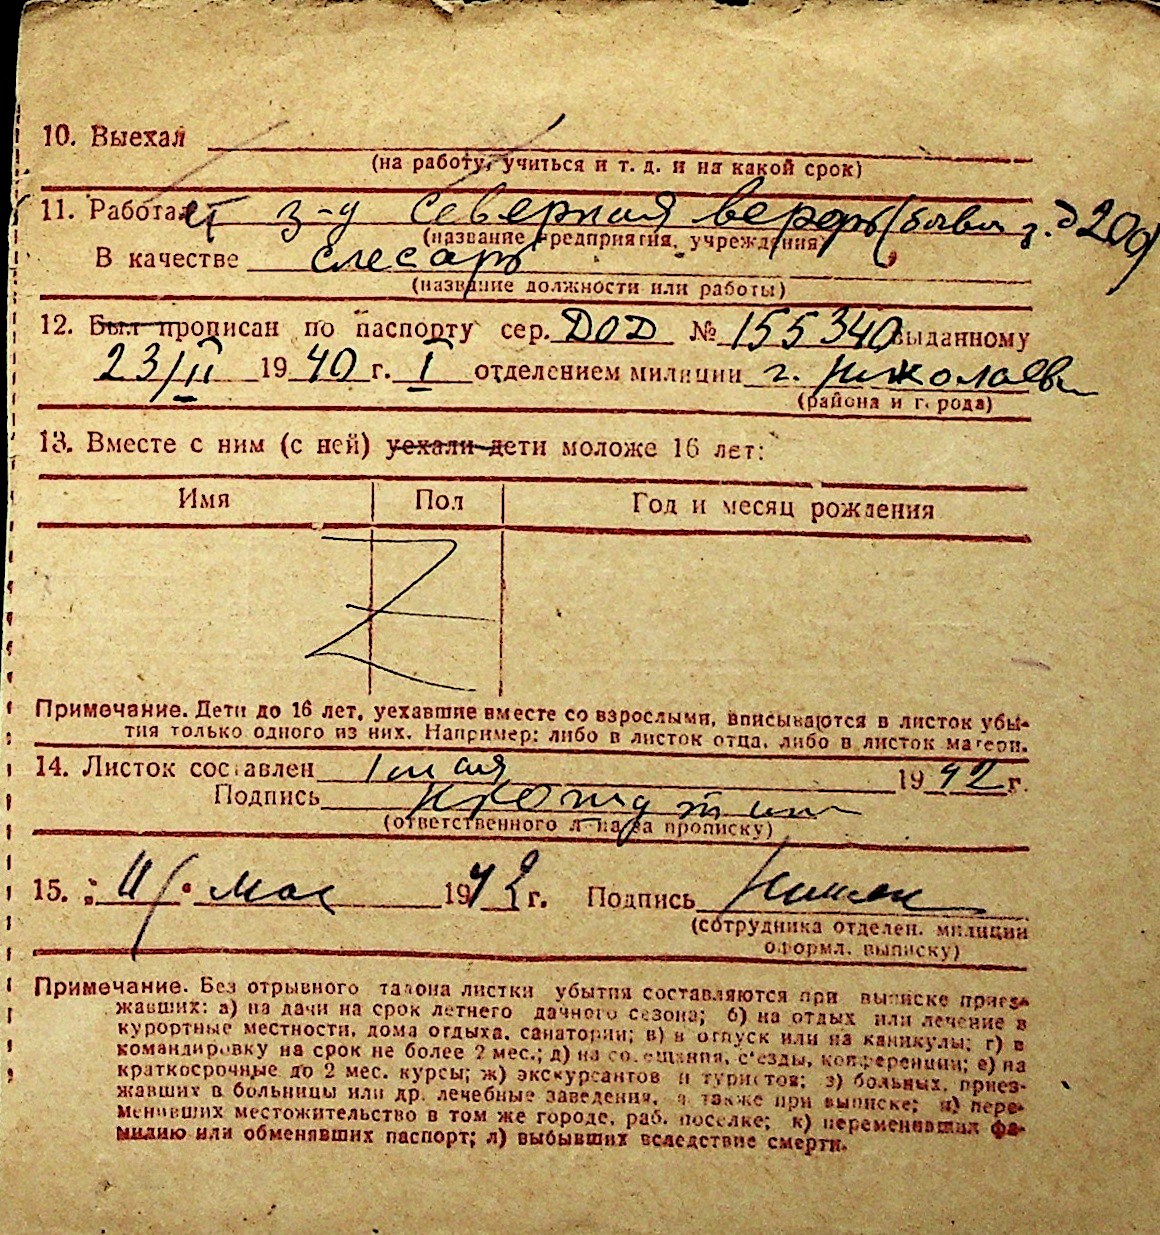 10. Выехал
(на работу, учиться и т. д. и на какой срок)
11. Работает з-д Северная верфь (бывш з.д 209)
(название предприятия, учреждения)
В качестве слесарь
(название должности или работы)
12. Был прописан по паспорту сер. ДОД № 155340 выданному
23/II 1940 г. I отделением милиции г. Николаев
(района и города)
13. Вместе с ним (с ней) уехали дети моложе 16 лет:
Имя Пол Год и месяц рождения
Z
Примечание. Дети до 16 лет, уехавшие вместе со взрослыми, вписываются в листок убы-
тия только одного из них. Например: либо в листок отца, либо в листок матери.
14. Листок составлен 1942 г.
Подпись
(ответственного лица за прописку)
15. 11 мая 1942 г. Подпись
(сотрудника отделен. милиции
оформл. выписку)
Примечание. Без отрывного талона листки убытия составляются при выписке приез-
жавших: а) на дачи на срок летнего дачного сезона; б) на отдых или лечение в
курортные местности, дома отдыха, санатории; в) в отпуск или на каникулы; г) в
командировку на срок не более 2 мес.; д) на совещания, с'езды, конференции; е) на
краткосрочные до 2 мес. курсы; ж) экскурсантов и туристов; з) больных, приез-
жавших в больницы или др. лечебные заведения, а также при выписке; и) пере-
менивших местожительство в том же городе, раб. поселке; к) переменивших фа-
милию или обменявших паспорт; л) выбывших вследствие смерти.